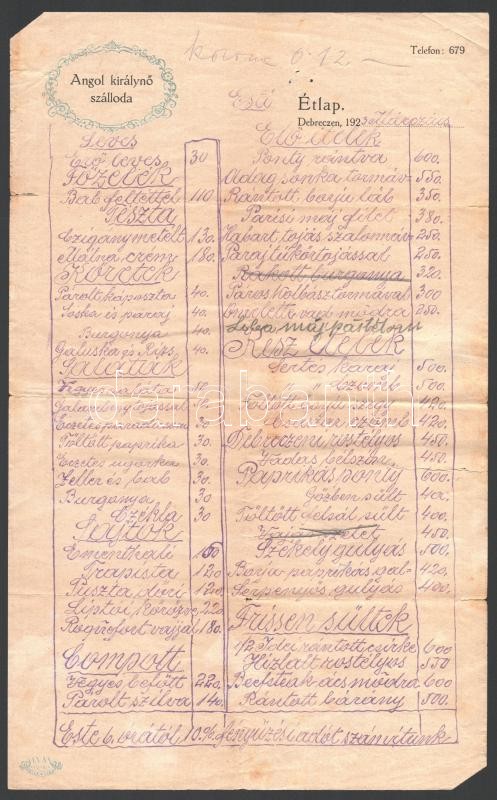 korona 6.12.-
Telefon: 679
Angol királynő
szálloda
Esti Étlap.
Debreczen, 1923 Március
Leves
Erő leves 30
Főzelék
Bab feltéttel 110
Tészta
Czigánymetélt 130.
Málna crem 180.
Köretek
Párolt káposzta 40.
Sóska és paraj 40.
Burgonya 40.
Galuska és Rizs 40.
Saláták
Vegyes saláta
Galamb tojással
Eczetes paradicsom 30
Töltött paprika 30.
Eczetes ugorka 30
Zeller és bab 30
Burgonya 30
Czékla 30
Sajtok
Ementháli 150
Trapista 120
Puszta dóri 120.
Liptói körözve 220
Rogfort vajjal 180.
Compott
Vegyes befőtt 220.
Párolt szilva 140.
Elő ételek
Ponty rántva 600.
Adag sonka tormáv. 550.
Rántott borju láb 350.
Párisi máj filet 380.
Habart tojás szalonnáv. 250.
Paraj tükörtojással 250.
Rakott burgonya 320
Páros kolbász tormával 300
Omlette vad módra 250.
Liba máj pástétom
Kész ételek
Sertés karaj 500.
" " 500.
Töltött 420.
420.
Debreczeni rostélyos 450.
Vadas bélszin 450.
Paprikás ponty 600.
Gőzben sült 400.
Töltött felsál sült 400.
450.
Székely gulyás 500.
Borju paprikás gal- 420.
Serpenyős gulyás 400.
Frissen sültek
1/2 Idei rántott csirke 600
Hizlalt rostélyos 550
Beefsteak ács módra 600
Rántott bárány 500.
Este 6. órától 10.% fényűzési adót számitunk
darabanth